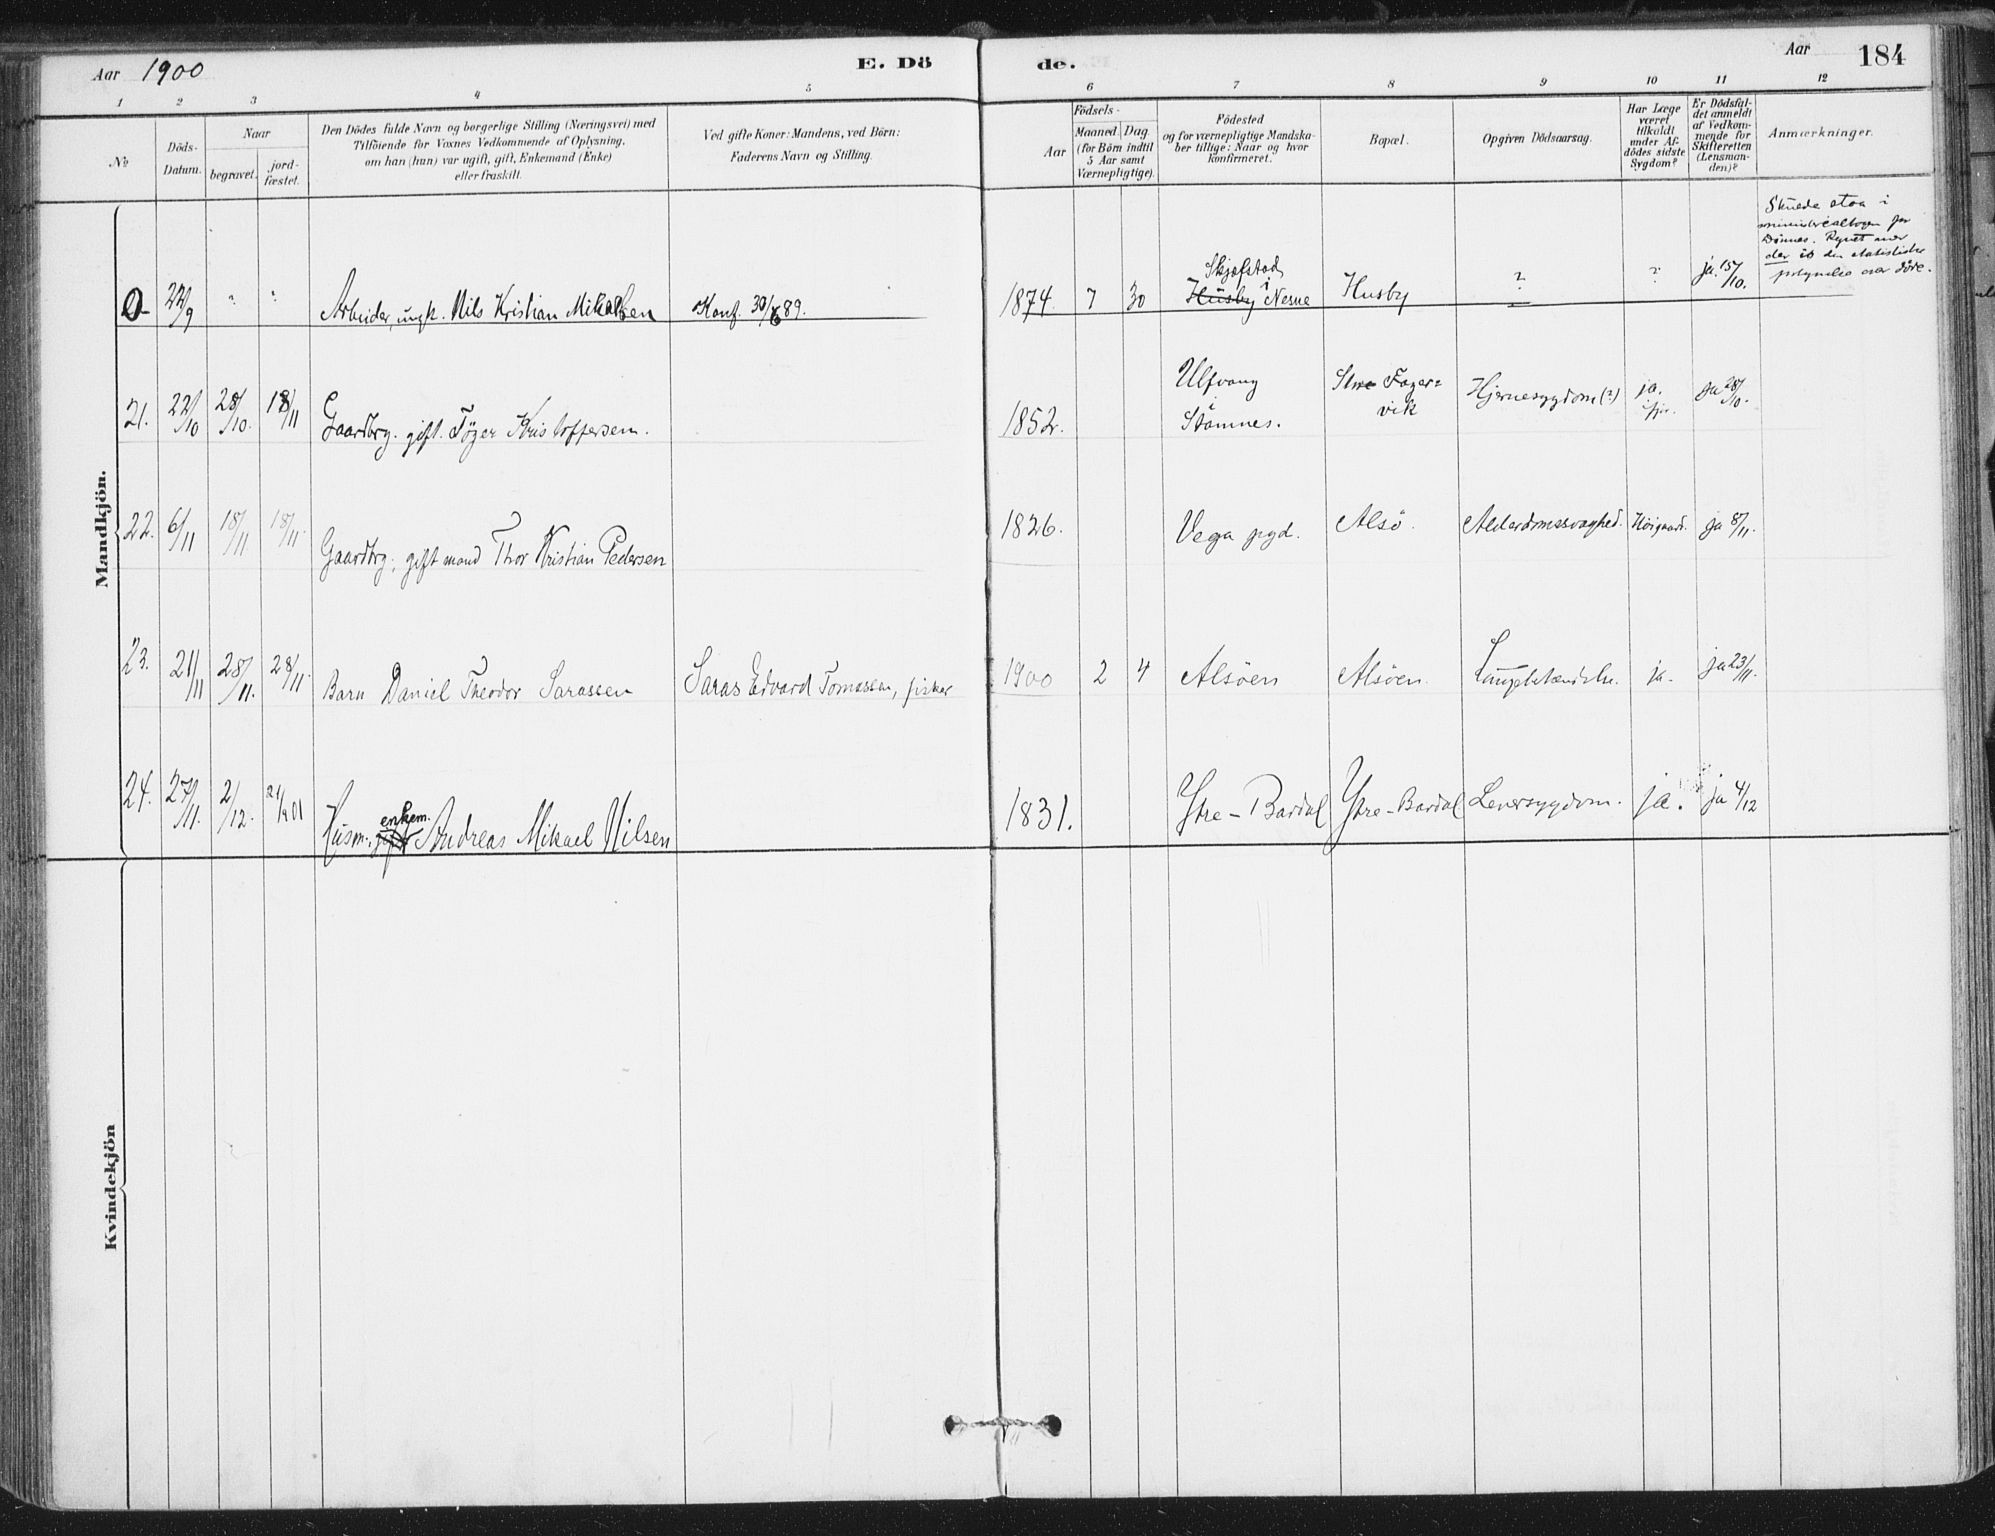 Aar 1900
E. Dö
de.
Aar
184
1 2 3 4 5 6 7 8 9 10 11 12
No
Döds-
Datum.
Naar
begravet.
jord-
fæstet.
Den Dödes fulde Navn og borgerlige Stilling (Næringsvei) med
Tilföiende for Voxnes Vedkommende af Oplysning,
om han (hun) var ugift, gift, Enkemand (Enke)
eller fraskilt.
Ved gifte Koner: Mandens, ved Börn:
Faderens Navn og Stilling.
Födsels-
Aar
Maaned. Dag.
(for Börn indtil
5 Aar samt
Værnepligtige).
Födested
og for værnepligtige Mandska-
ber tillige: Naar og hvor
konfirmeret.
Bopæl.
Opgiven Dödsaarsag.
Har Læge
været
tilkaldt
under Af-
dödes sidste
Sygdom?
Er Dödsfal-
det anmeldt
af Vedkom-
mende for
Skifteretten
(Lensman-
den)?
Anmærkninger.
Mandkjön.
0 22/9 ? ? Arbeider, ungk. Nils Kristian Mikalsen Konf. 30/6 89. 1874. 7 30
Skjefstad
i
Husby Nesne
Husby ? ? ja 15/10.
Skulde staa i
ministerialbogen for
Dönnes.
21. 22/10 28/10. 18/11 Gaardbrg. gift. Töger Kristoffersen. 1852.
Ulfvang
i
Stamnes.
Store Fager=
vik
Hjernesygdom (?) ja. ja 28/10.
22. 6/11 18/11 18/11. Gaardbrg., gift mand Thor Kristian Pedersen 1826. Vega pgd. Alsö. Alderdomssvaghed. Höigaard. ja 8/11.
23. 21/11 28/11. 28/11. Barn Daniel Theodor Sarassen Saras Edvard Tomassen, fisker 1900 2 4 Alsöen Alsöen. Lungebetændelse. ja. ja 23/11.
24. 27/11. 2/12. Husm., gift enkem. Andreas Mikael Nilsen 1831. Ytre-Bardal Ytre-Bardal Leversygdom. ja. ja 4/12
Kvindekjön